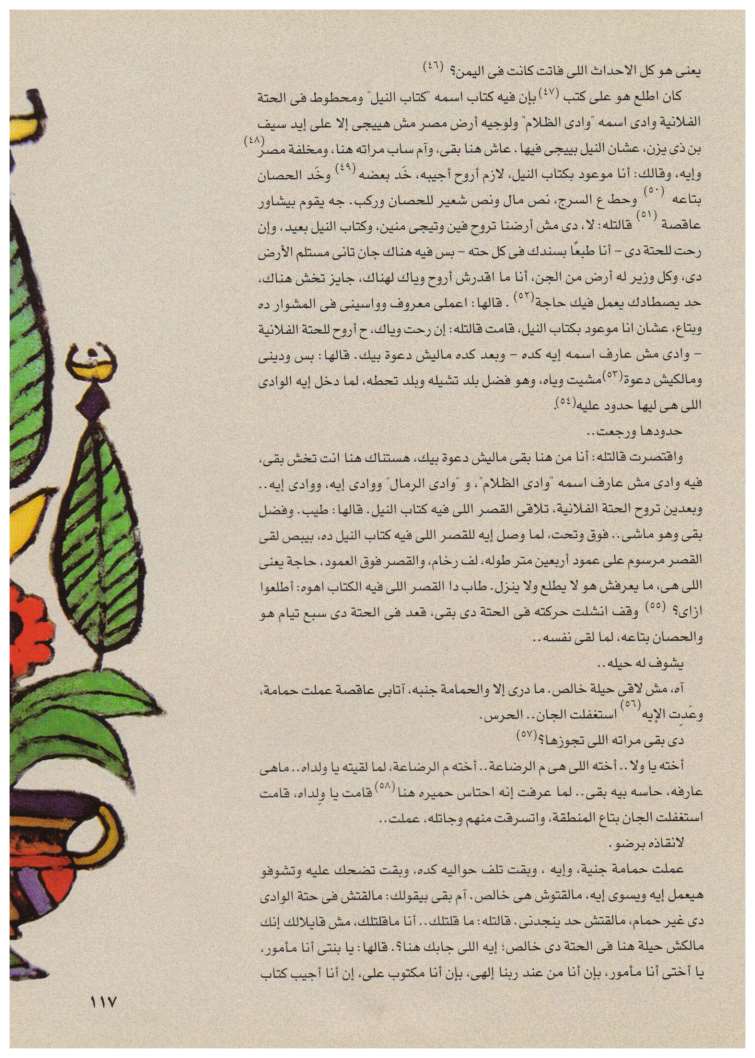 يعنى هو كل الاحداث اللى فاتت كانت فى اليمن؟ (٤٦)
كان اطلع هو على كتب (٤٧) بإن فيه كتاب اسمه "كتاب النيل" ومحطوط فى الحتة
الفلانية وادى اسمه "وادى الظلام" ولوجيه أرض مصر مش هييجى إلا على إيد سيف
بن ذى يزن، عشان النيل بييجى فيها. عاش هنا بقى، وآم ساب مراته هنا، ومخلفة مصر (٤٨)
وإيه، وقالك: أنا موعود بكتاب النيل، لازم أروح أجيبه، خَد بعضه (٤٩) وخَد الحصان
بتاعه (٥٠) وحط ع السرج، نص مال ونص شعير للحصان وركب. جه يقوم بيشاور
عاقصة (٥١) قالتله: لا، دى مش أرضنا تروح فين وتيجى منين، وكتاب النيل بعيد، وإن
رحت للحتة دى – أنا طبعًا بسندك فى كل حته – بس فيه هناك جان تانى مستلم الأرض
دى، وكل وزير له أرض من الجن، أنا ما اقدرش أروح وياك لهناك، جايز تخش هناك،
حد يصطادك يعمل فيك حاجة (٥٢) . قالها: اعملى معروف وواسينى فى المشوار ده
وبتاع، عشان انا موعود بكتاب النيل، قامت قالتله: إن رحت وياك، ح أروح للحتة الفلانية
– وادى مش عارف اسمه إيه كده – وبعد كده ماليش دعوة بيك. قالها: بس ودينى
ومالكيش دعوة (٥٣) مشيت وياه، وهو فضل بلد تشيله وبلد تحطه، لما دخل إيه الوادى
اللى هى ليها حدود عليه (٥٤).
حدودها ورجعت..
واقتصرت قالتله: أنا من هنا بقى ماليش دعوة بيك، هستناك هنا انت تخش بقى،
فيه وادى مش عارف اسمه "وادى الظلام"، و "وادى الرمال" ووادى إيه، ووادى إيه..
وبعدين تروح الحتة الفلانية، تلاقى القصر اللى فيه كتاب النيل. قالها: طيب. وفضل
بقى وهو ماشى.. فوق وتحت، لما وصل إيه للقصر اللى فيه كتاب النيل ده، بيبص لقى
القصر مرسوم على عمود أربعين متر طوله، لف رخام، والقصر فوق العمود، حاجة يعنى
اللى هى، ما يعرفش هو لا يطلع ولا ينزل. طاب دا القصر اللى فيه الكتاب اهوه: أطلعوا
ازاى؟ (٥٥) وقف انشلت حركته فى الحتة دى بقى، قعد فى الحتة دى سبع تيام هو
والحصان بتاعه، لما لقى نفسه..
يشوف له حيله..
آه، مش لاقى حيلة خالص. ما درى إلا والحمامة جنبه، أتابى عاقصة عملت حمامة،
وعَدت الإيه (٥٦) استغفلت الجان.. الحرس.
دى بقى مراته اللى تجوزها؟ (٥٧)
أخته يا ولا.. أخته اللى هى م الرضاعة.. أخته م الرضاعة، لما لقيته يا ولداه.. ماهى
عارفه، حاسه بيه بقى.. لما عرفت إنه احتاس حميره هنا (٥٨) قامت يا ولداه، قامت
استغفلت الجان بتاع المنطقة، واتسرقت منهم وجاتله، عملت..
لانقاذه برضو.
عملت حمامة جنية، وإيه ، وبقت تلف حواليه كده، وبقت تضحك عليه وتشوفو
هيعمل إيه ويسوى إيه، مالقتوش هى خالص، آم بقى بيقولك: مالقتش فى حتة الوادى
دى غير حمام، مالقتش حد ينجدنى. قالتله: ما قلتلك.. أنا ماقلتلك، مش قايلالك إنك
مالكش حيلة هنا فى الحتة دى خالص؛ إيه اللى جابك هنا؟. قالها: يا بنتى أنا مأمور،
يا أختى أنا مأمور، بإن أنا من عند ربنا إلهى، بإن أنا مكتوب على، إن أنا أجيب كتاب
١١٧